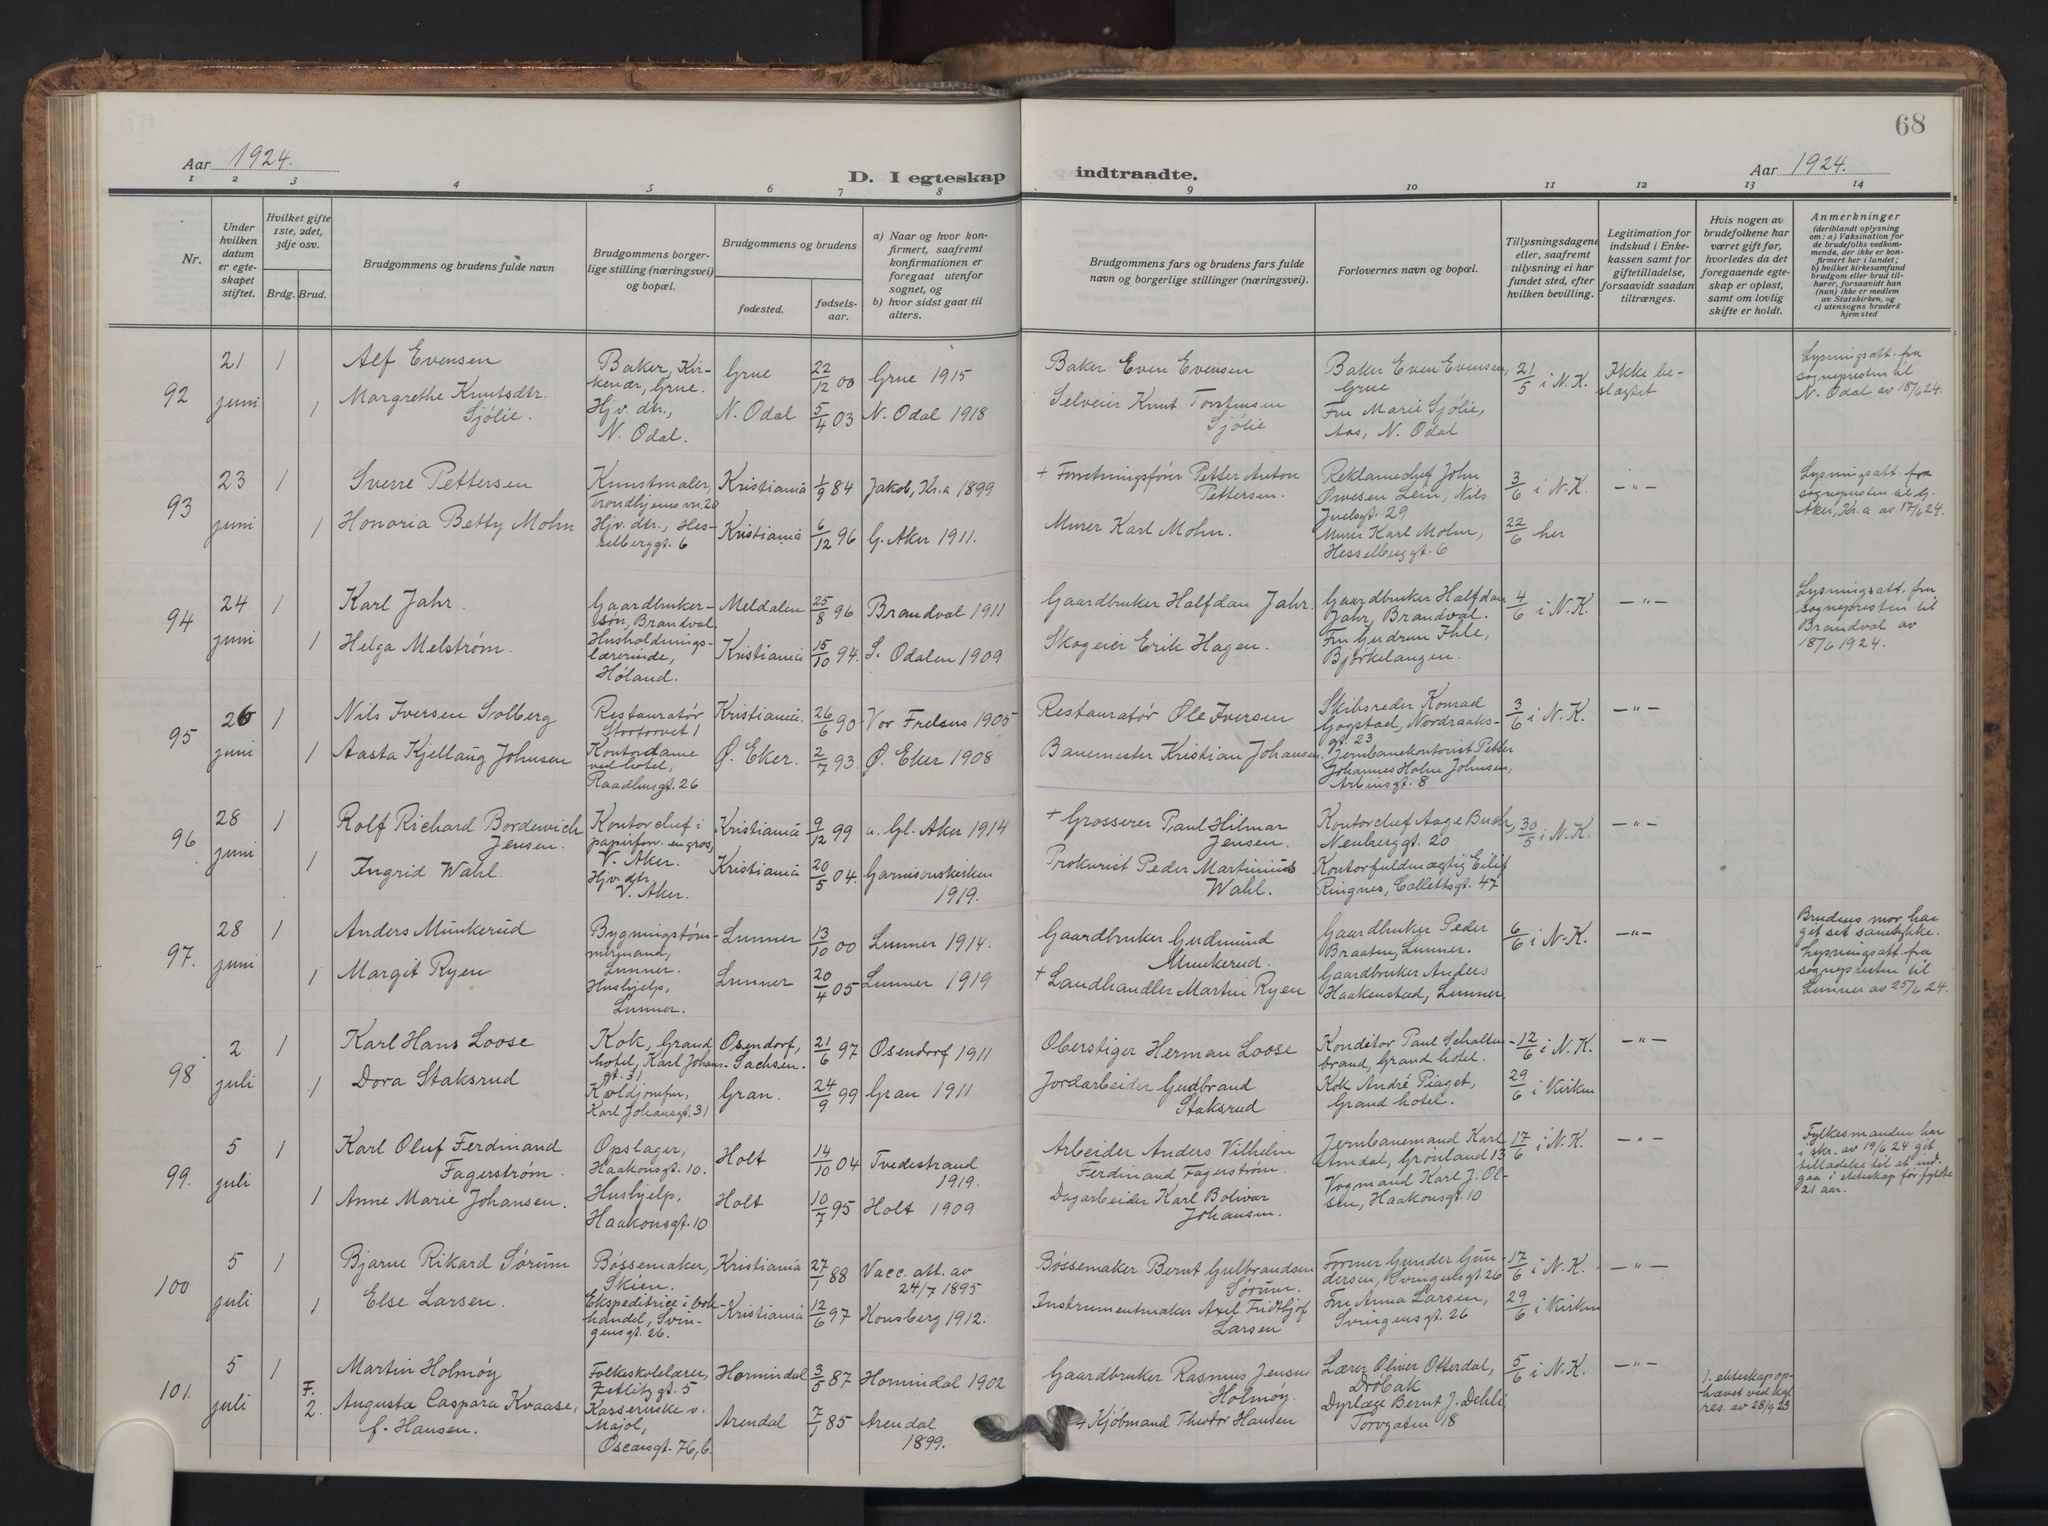 68
Aar 1924.
D. I egteskap indtraadte.
Aar 1924.
1 2 3 4 5 6 7 8 9 10 11 12 13 14
Nr.
Under hvilken datum er egteskapet stiftet.
Hvilket gifte 1ste, 2det, 3dje osv.
Brdg. Brud.
Brudgommens og brudens fulde navn
Brudgommens borgerlige stilling (næringsvei) og bopæl.
Brudgommens og brudens
fødested.
fødselsaar.
a) Naar og hvor konfirmert, saafremt konfirmationen er foregaat utenfor sognet, og
b) hvor sidst gaat til alters.
Brudgommens fars og brudens fars fulde navn og borgerlige stillinger (næringsvei).
Forlovernes navn og bopæl.
Tillysningsdagene eller, saafremt tillysning ei har fundet sted, efter hvilken bevilling.
Legitimation for indskud i Enkekassen samt for giftetilladelse, forsaavidt saadan tiltrænges.
Hvis nogen av brudefolkene har været gift før, hvorledes da det foregaaende egteskap er opløst, samt om lovlig skifte er holdt.
Anmerkninger
(deriblandt oplysning om: a) Vaksination for de brudefolks vedkommende, der ikke er konfirmert her i landet; b) hvilket kirkesamfund brudgom eller brud tilhører, forsaavidt han (hun) ikke er medlem av Statskirken, og c) utensogns bruders hjemsted
92 21 juni 1 Alf Evensen Baker, Kirkenær, Grue. Grue 22/12 00 Grue 1915 Baker Even Evensen Baker Even Evensen, Grue 21/5 i N.K. Ikke beslægtet Lysningsatt. fra sognepresten til N. Odal av 18/6 24.
1 Margrethe Knutsdtr. Sjølie. Hjv. dtr., N. Odal. N. Odal 5/4 03 N. Odal 1918 Selveier Knut Torstensen Sjølie Fru Marie Sjølie, Aas, N. Odal
93 23 juni 1 Sverre Pettersen Kunstmaler, Trondhjemsvn. 20 Kristiania 1/9 84 Jakob, Kr.a 1899 + Forretningsfører Petter Anton Pettersen. Reklamechef John Ørvesen Lein, Nils Juelsgt. 29 3/6 i N.K. -"- Lysningsatt. fra sognepresten til G. Aker, Kr.a av 17/6 24.
1 Honoria Betty Mohn Hjv. dtr., Hesselberggt. 6 Kristiania 6/12 96 G. Aker 1911. Murer Karl Mohn. Murer Karl Mohn, Hesselberggt. 6 22/6 her
94 24 juni 1 Karl Jahr. Gaardbrukersøn, Brandval. Meldalen 25/8 96 Brandval 1911 Gaardbruker Halfdan Jahr. Gaardbruker Halfdan Jahr, Brandval. 4/6 i N.K. -"- Lysningsatt. fra sognepresten til Brandval av 18/6 1924.
1 Helga Melstrøm. Husholdningslærerinde, Høland. Kristiania 15/10 94. S. Odalen 1909 Skogeier Erik Hagen. Fru Gudrun Ihle, Bjørkelangen.
95 26 juni 1 Nils Iversen Solberg Restauratør Stortorvet 1 Kristiania. 26/6 90 Vor Frelsers 1905 Restauratør Ole Iversen Skibsreder Konrad Gogstad, Nordraaksgt. 23 3/6 i N.K. -"-
1 Aasta Kjellaug Johnsen Kontordame ved hotel, Raadhusgt. 26 Ø. Eker. 2/7 93. Ø. Eker 1908 Banemester Kristian Johansen. Jernbanekontorist Petter Johannes Holm Johnsen, Arbinsgt. 8
96 28 juni 1 Rolf Richard Bordewich Jensen. Kontorchef i papirforr. en gros, V. Aker. Kristiania 9/12 99 a. Gl. Aker 1914 + Grosserer Paul Hilmar Jensen. Kontorchef Aage Buch, Neuberggt. 20 30/5 i N.K. -"-
1 Ingrid Wahl. Hjv. dtr, V. Aker. Kristiania 20/5 04. Garnisonskirken 1919. Prokurist Peder Martinius Wahl. Kontorfuldmægtig Eilif Ringnes, Collettsgt. 47
97. 28 juni 1 Anders Munkerud Bygningstømmermand, Lunner. Lunner 13/10 00 Lunner 1914. Gaardbruker Gudmund Munkerud. Gaardbruker Peder Braaten, Lunner. 6/6 i N.K. -"- Brudens mor har git sit samtykke. Lysningsatt. fra sognepresten til Lunner av 25/6 24.
1 Margit Ryen Hushjelp, Lunner. Lunner 20/4 05 Lunner 1919 + Landhandler Martin Ryen Gaardbruker Anders Haakenstad, Lunner.
98 2 juli 1 Karl Hans Loose Kok, Grand hotel, Karl Johansgt. 31 Osendorf, Sachsen. 21/6 97 Osendorf 1911 Oberstiger Herman Loose Konditor Paul Schaltenbrand, Grand hotel. 12/6 i N.K. -"-
1 Dora Staksrud Koldjomfru, Karl Johansgt. 31 Gran. 24/9 99 Gran 1911 Jordarbeider Gudbrand Staksrud Kok André Piaget, Grand hotel. 29/6 i Kirken
99. 5 juli 1 Karl Oluf Ferdinand Fagerstrøm. Opslager, Haakonsgt. 10. Holt 14/10 04 Tvedestrand 1919. Arbeider Anders Vilhelm Ferdinand Fagerstrøm. Jernbanemand Karl Amdal, Grønland 13 17/6 i N.K. -"- Fylkesmanden har i skr. av 19/6 24 git tilladelse til at indgaa i ekteskap før fyldte 21 aar.
1 Anne Marie Johansen. Hushjelp, Haakonsgt. 10 Holt 10/7 95 Holt 1909 Dagarbeider Karl Bolivar Johansen. Vogmand Karl J. Olsen, Haakonsgt. 10
100 5 juli 1 Bjarne Rikard Sørum Bøssemaker, Skien. Kristiania 27/1 88 Vacc. att. av 24/7 1895 Bøssemaker Bernt Gulbrandsen Sørum. Former Gunder Gundersen, Svingensgt. 26 17/6 i N.K. -"-
1 Else Larsen. Ekspeditrice i bokhandel, Svingensgt. 26. Kristiania 12/6 97 Konsberg 1912. Instrumentmaker Axel Fridthjof Larsen Fru Anna Larsen, Svingensgt. 26 29/6 i Kirken
101. 5 juli 1 Martin Holmøy Folkeskolelærer, Zetlitzgt. 5 Hornindal 3/5 87 Hornindal 1902 Gaardbruker Rasmus Jensen Holmøy. Lærer Oliver Otterdal, Drøbak 5/6 i N.K. -"- 1. ekteskap ophævet ved kgl. res. av 28/9 23
F. 2. Augusta Caspara Kvaase, f. Hansen. Kasserinske v. Majol, Oscarsgt. 76,b. Arendal 7/1 85 Arendal 1899. + Kjøbmand Theodor Hansen Dyrlæge Bernt J. Dehli, Torvgaten 18